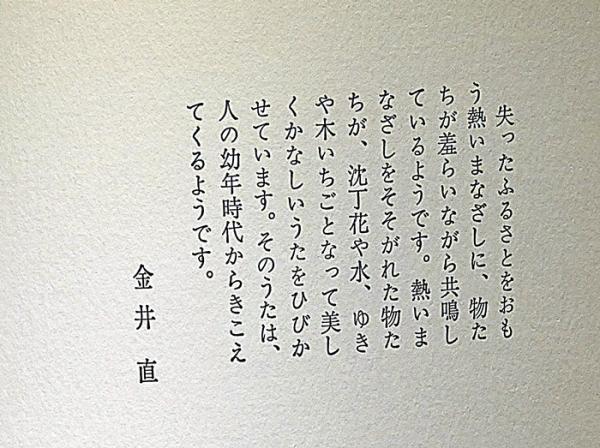 失ったふるさとをおも
う熱いまなざしに、物た
ちが羞らいながら共鳴し
ているようです。熱いま
なざしをそそがれた物た
ちが、沈丁花や水、ゆき
や木いちごとなって美し
くかなしいうたをひびか
せています。そのうたは、
人の幼年時代からきこえ
てくるようです。
金井直